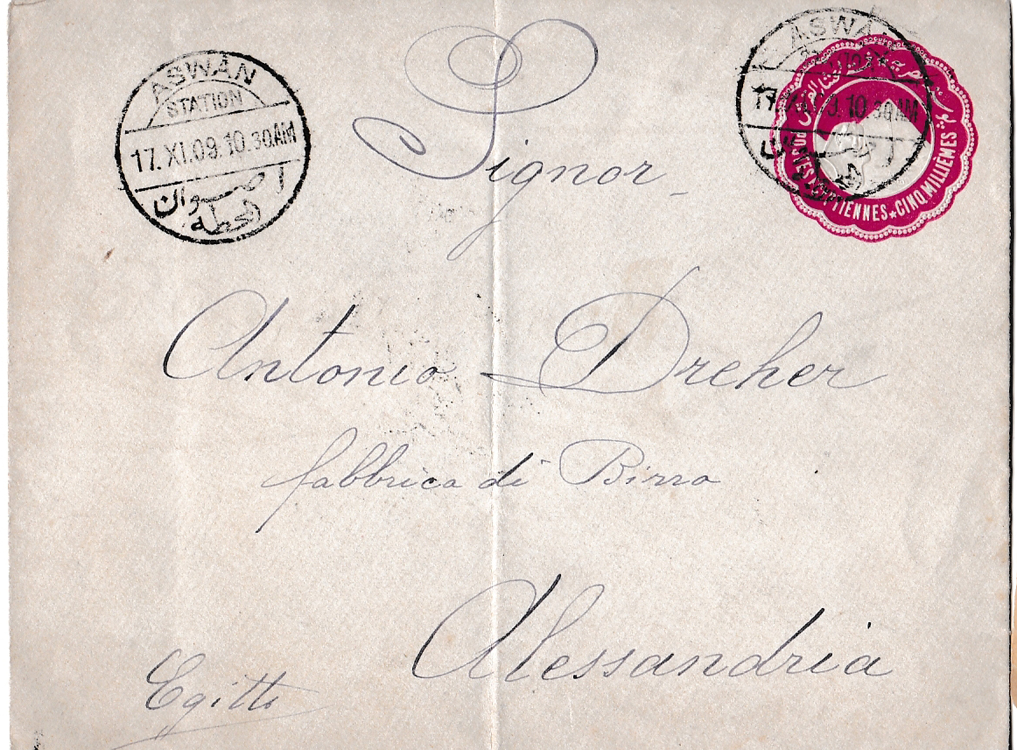 ASWAN
STATION
17.XI.09.10.30AM
اصوان
المحطه
ASWAN
17.XI.09.10.30AM
POSTES EGYPTIENNES ★ CINQ MILLIÈMES ★
Signor
Antonio Dreher
fabbrica di Birra
Alessandria
Egitto